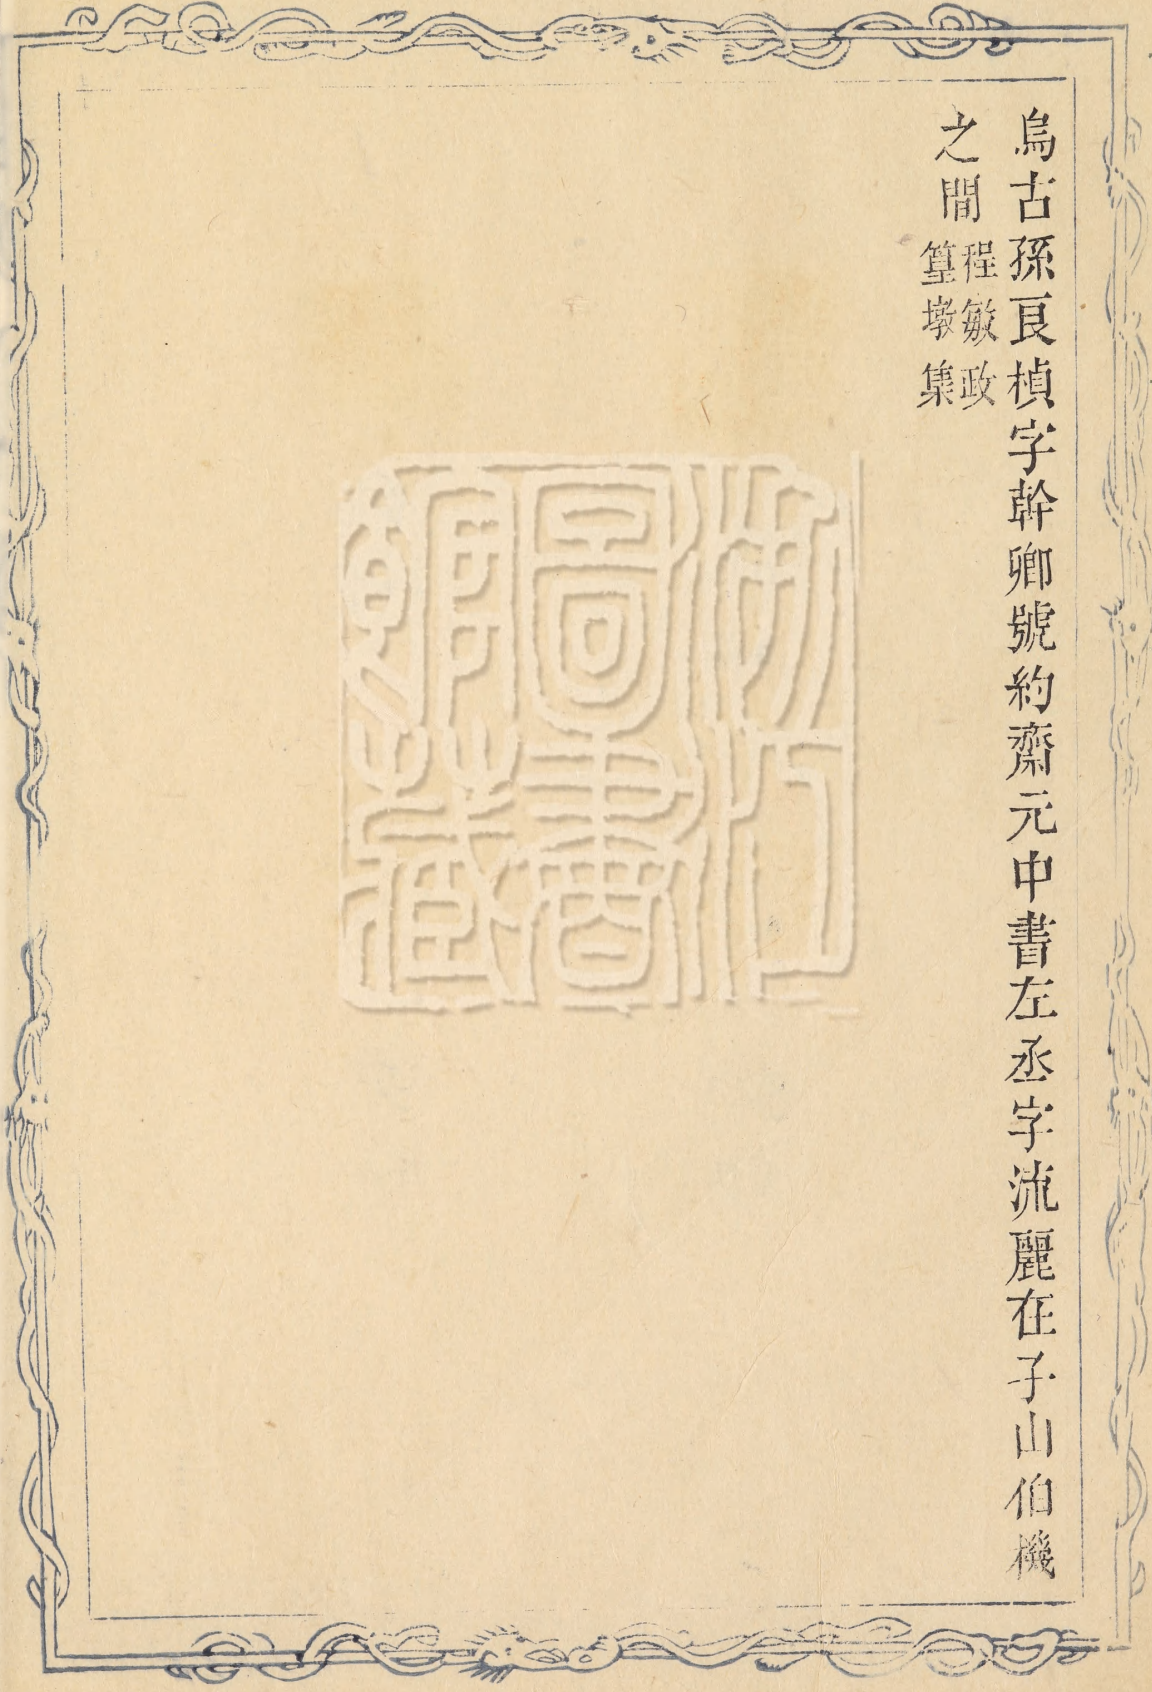 烏古孫良楨字幹卿號約齋元中書左丞字流麗在子山伯機
之間程敏政
篁墩集
浙江
圖書
館藏